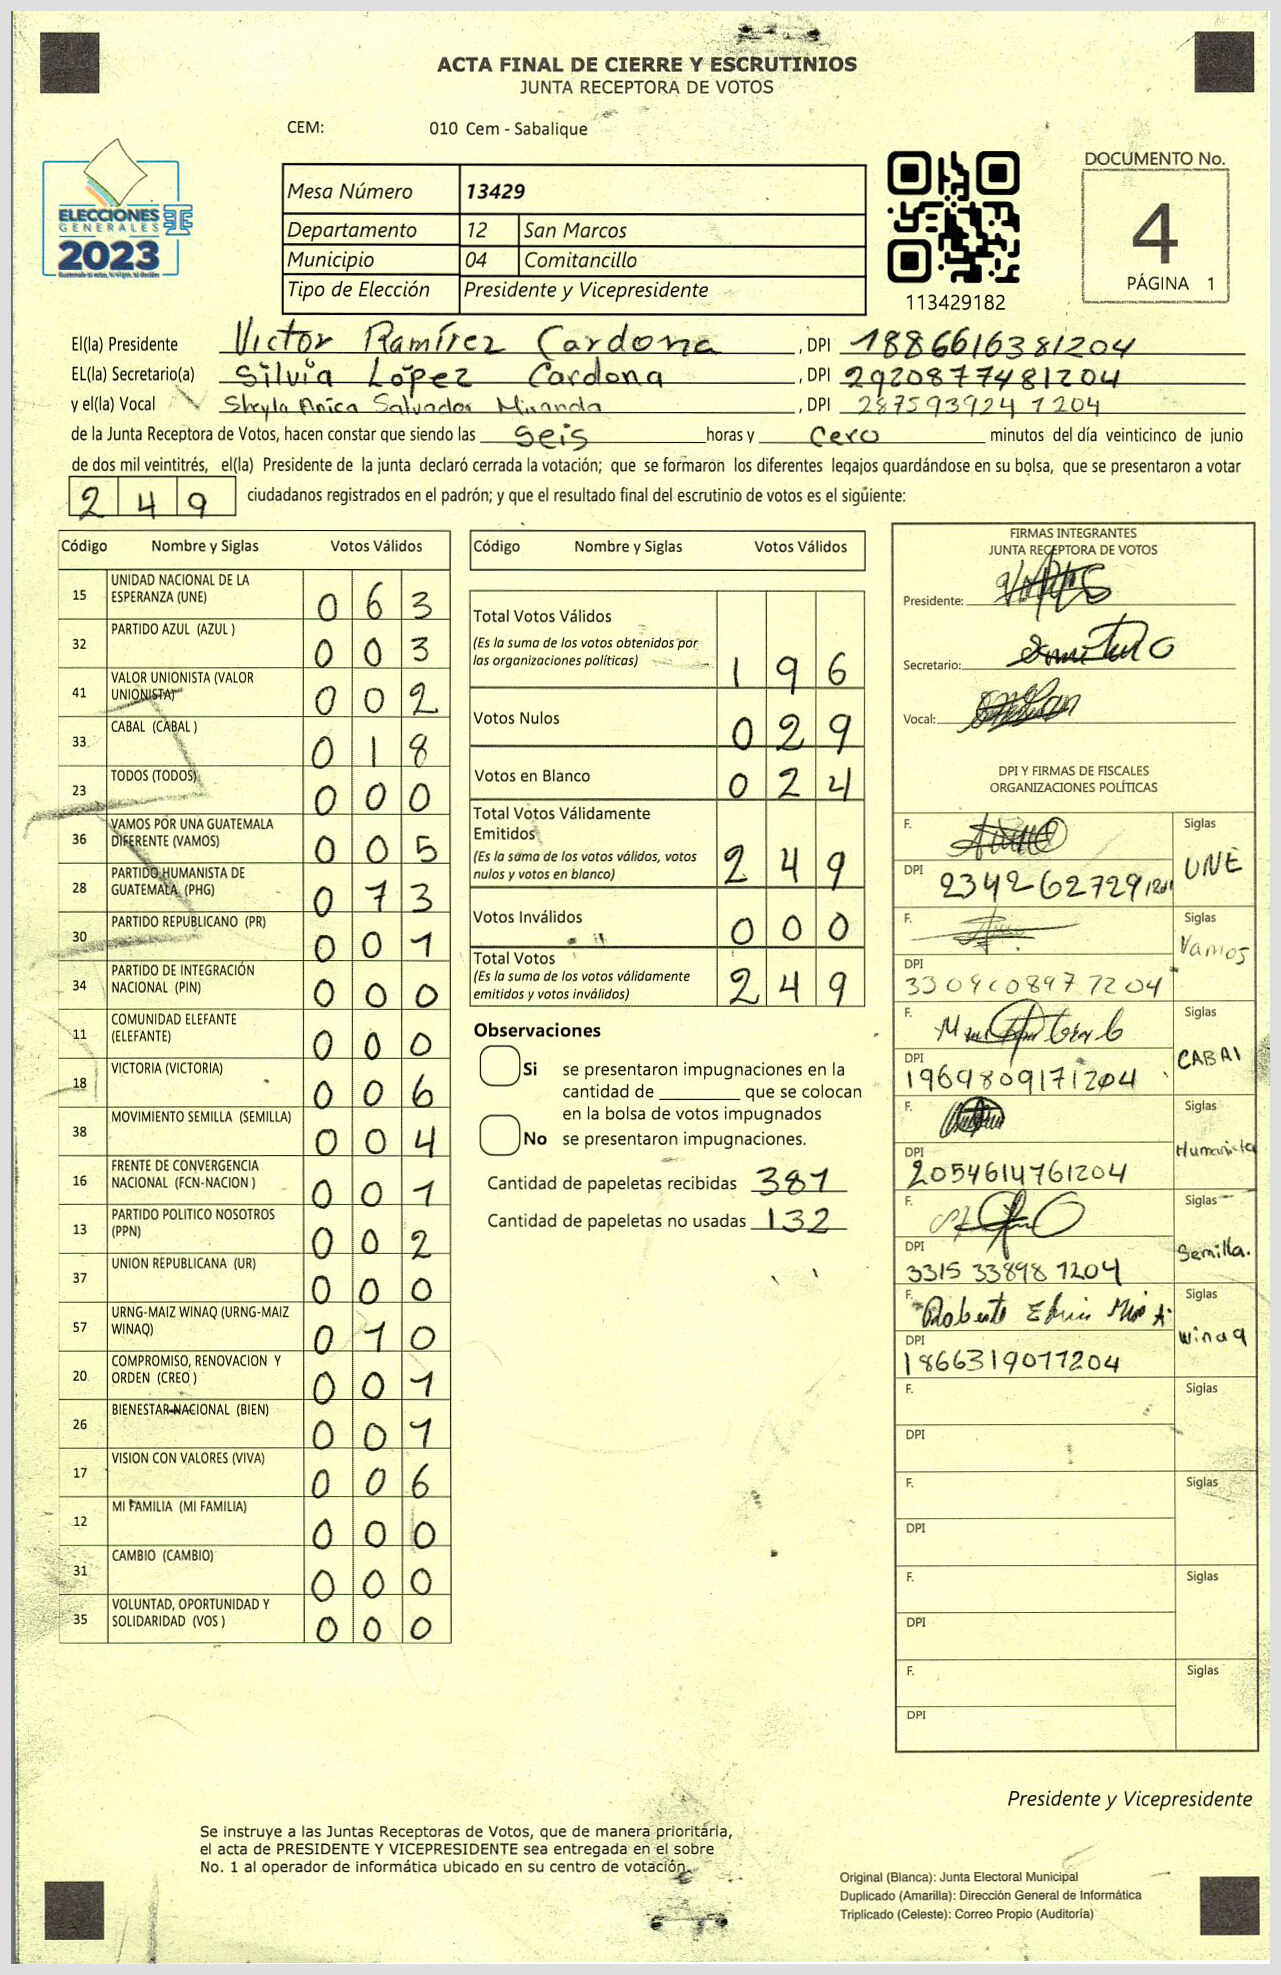 ACTA FINAL DE CIERRE Y ESCRUTINIOS
JUNTA RECEPTORA DE VOTOS
CEM: 010 Cem - Sabalique
ELECCIONES
GENERALES
2023
Mesa Número 13429
Departamento 12 San Marcos
Municipio 04 Comitancillo
Tipo de Elección Presidente y Vicepresidente
113429182
DOCUMENTO No.
4
PÁGINA 1
El(la) Presidente Victor Ramírez Cardona , DPI 1886616381204
EL(la) Secretario(a) Silvia López Cardona , DPI 2920877481204
y el(la) Vocal Sheyla Anica Salvador Miranda , DPI 287593924 1204
de la Junta Receptora de Votos, hacen constar que siendo las seis horas y cero minutos del día veinticinco de junio
de dos mil veintitrés, el(la) Presidente de la junta declaró cerrada la votación; que se formaron los diferentes legajos guardándose en su bolsa, que se presentaron a votar
249 ciudadanos registrados en el padrón; y que el resultado final del escrutinio de votos es el siguiente:
Código Nombre y Siglas Votos Válidos
15 UNIDAD NACIONAL DE LA
ESPERANZA (UNE) 063
32 PARTIDO AZUL (AZUL ) 003
41 VALOR UNIONISTA (VALOR
UNIONISTA) 002
33 CABAL (CABAL ) 018
23 TODOS (TODOS) 000
36 VAMOS POR UNA GUATEMALA
DIFERENTE (VAMOS) 005
28 PARTIDO HUMANISTA DE
GUATEMALA (PHG) 073
30 PARTIDO REPUBLICANO (PR) 001
34 PARTIDO DE INTEGRACIÓN
NACIONAL (PIN) 000
11 COMUNIDAD ELEFANTE
(ELEFANTE) 000
18 VICTORIA (VICTORIA) 006
38 MOVIMIENTO SEMILLA (SEMILLA) 004
16 FRENTE DE CONVERGENCIA
NACIONAL (FCN-NACION ) 001
13 PARTIDO POLITICO NOSOTROS
(PPN) 002
37 UNION REPUBLICANA (UR) 000
57 URNG-MAIZ WINAQ (URNG-MAIZ
WINAQ) 010
20 COMPROMISO, RENOVACION Y
ORDEN (CREO ) 001
26 BIENESTAR NACIONAL (BIEN) 001
17 VISION CON VALORES (VIVA) 006
12 MI FAMILIA (MI FAMILIA) 000
31 CAMBIO (CAMBIO) 000
35 VOLUNTAD, OPORTUNIDAD Y
SOLIDARIDAD (VOS ) 000
Código Nombre y Siglas Votos Válidos
Total Votos Válidos
(Es la suma de los votos obtenidos por
las organizaciones políticas) 196
Votos Nulos 029
Votos en Blanco 024
Total Votos Válidamente
Emitidos
(Es la sama de los votos válidos, votos
nulos y votos en blanco) 249
Votos Inválidos 000
Total Votos
(Es la suma de los votos válidamente
emitidos y votos inválidos) 249
Observaciones
Si se presentaron impugnaciones en la
cantidad de ________ que se colocan
en la bolsa de votos impugnados
No se presentaron impugnaciones.
Cantidad de papeletas recibidas 381
Cantidad de papeletas no usadas 132
FIRMAS INTEGRANTES
JUNTA RECEPTORA DE VOTOS
Presidente:
Secretario:
Vocal:
DPI Y FIRMAS DE FISCALES
ORGANIZACIONES POLÍTICAS
F. Siglas
DPI UNE
2342627291201
F. Siglas
Vamos
DPI
3309608977204
F. Siglas
CABAl
DPI
1969809171204
F. Siglas
Humanista
DPI
2054614761204
F. Siglas
Semilla.
DPI
3315 33898 1204
F. Roberto Siglas
winaq
DPI
1866319071204
F. Siglas
DPI
F. Siglas
DPI
F. Siglas
DPI
F. Siglas
DPI
Presidente y Vicepresidente
Se instruye a las Juntas Receptoras de Votos, que de manera prioritaria,
el acta de PRESIDENTE Y VICEPRESIDENTE sea entregada en el sobre
No. 1 al operador de informática ubicado en su centro de votación.
Original (Blanca): Junta Electoral Municipal
Duplicado (Amarilla): Dirección General de Informática
Triplicado (Celeste): Correo Propio (Auditoría)